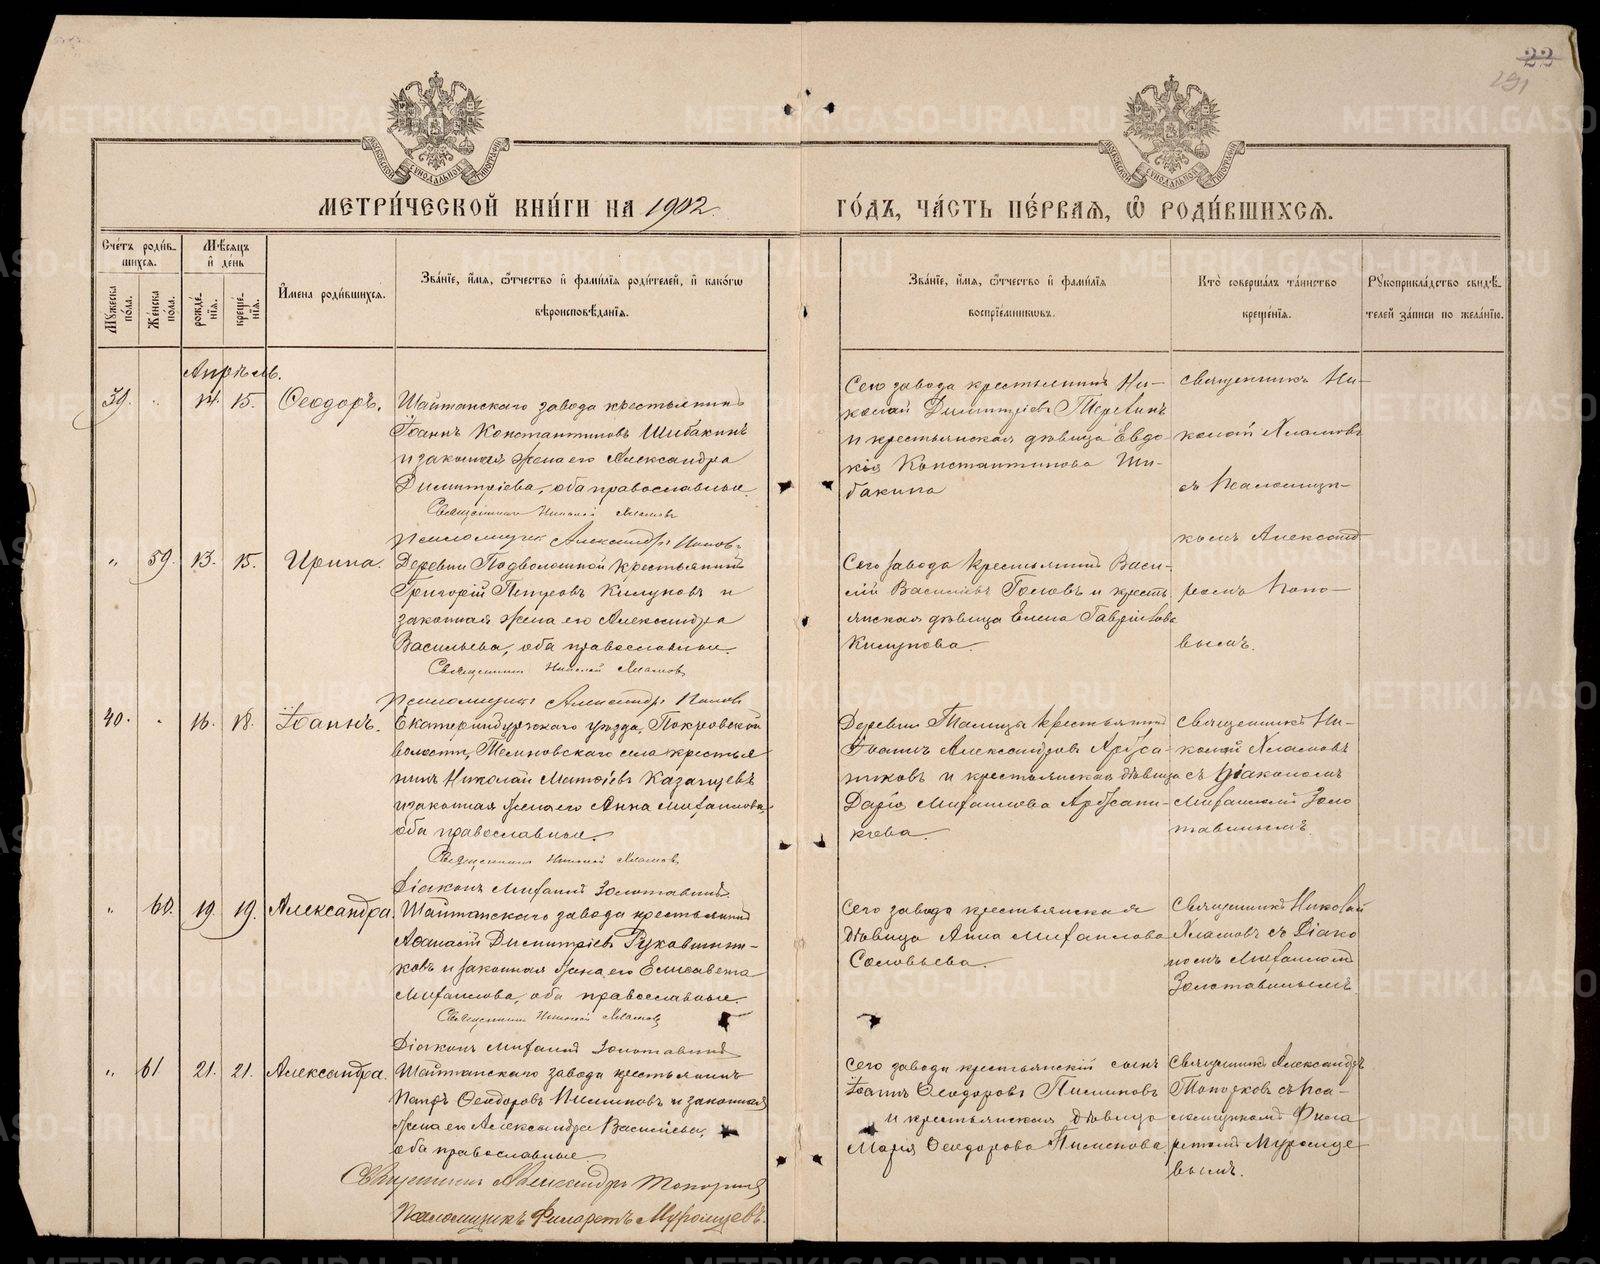 22
191
МЕТРИ́ЧЕСКОЙ КНИ́ГИ НА 1902
ГО́ДЪ, ЧА́СТЬ ПЕ́РВАЯ, Ѿ РОДИ́ВШИХСЯ.
Счétъ роди́в-
шихся.
Мѣсяцъ
и де́нь
Мужеска по́ла.
Же́нска по́ла.
рожде́нія.
креще́нія.
И҆мена роди́вшихся.
Зва́ніе, и҆мя, ѻ҆тчество и҆ фами́лія роди́телей, и҆ како́гѡ
вѣроисповѣ́данія.
Зва́ніе, и҆мя, ѻ҆тчество и҆ фами́лія
воспріе́мникѡвъ.
Кто̀ соверша́лъ та́инство
креще́нія.
Рукоприкла́дство свидѣ́-
телей за́писи по жела́нію.
Апрѣль.
39. „ 14. 15. Ѳеодоръ.
Шайтанскаго завода крестьянинъ
Іоаннъ Константиновъ Шибакинъ
и законная жена его Александра
Димитріева, оба православные.
Священникъ Николай Хламовъ
Псаломщикъ Александръ Поповъ
Сего завода крестьянинъ Ни-
колай Димитріевъ Теревинъ
и крестьянская дѣвица Евдо-
кія Константинова Ши-
бакина
Священникъ Ни-
колай Хламовъ
съ Псаломщи-
комъ Александ
ромъ Попо-
вымъ.
„ 59. 13. 15. Ирина.
Деревни Подволошной крестьянинъ
Григорій Петровъ Килуновъ и
законная жена его Александра
Васильева, оба православные.
Священникъ Николай Хламовъ
Псаломщикъ Александръ Поповъ
Сего завода крестьянинъ Васи-
лій Васильевъ Головъ и кресть
янская дѣвица Елена Гавріилова
Килунова.
40. „ 16. 18. Іоаннъ.
Екатеринбургскаго уѣзда, Покровской
волости, Темновскаго села крестья
нинъ Николай Матѳіевъ Казанцевъ
и законная жена его Анна Михаилова,
оба православные.
Священникъ Николай Хламовъ
Діаконъ Михаилъ Золотавинъ
Деревни Талицы крестьянинъ
Іоаннъ Александровъ Арбуза-
никовъ и крестьянская дѣвица
Дарія Михаилова Арбузани-
кова.
Священникъ Ни-
колай Хламовъ
съ діакономъ
Михаиломъ Золо
тавинымъ.
„ 60. 19. 19. Александра.
Шайтанскаго завода крестьянинъ
Аѳанасій Димитріевъ Рукавишни-
ковъ и законная жена его Елисавета
Михаилова, оба православные.
Священникъ Николай Хламовъ
Діаконъ Михаилъ Золотавинъ
Сего завода крестьянская
дѣвица Анна Михаилова
Соловьева.
Священникъ Николай
Хламовъ съ Діако
номъ Михаиломъ
Золотавинымъ.
„ 61 21. 21. Александра.
Шайтанскаго завода крестьянинъ
Петръ Ѳеодоровъ Пименовъ и законная
жена его Александра Васильева,
оба православные.
Священникъ Александръ Топорковъ
Псаломщикъ Филаретъ Муромцевъ.
Сего завода крестьянскій сынъ
Іоаннъ Ѳеодоровъ Пименовъ
и крестьянская дѣвица
Марія Ѳеодорова Пименова.
Священникъ Александръ
Топорковъ съ Пса-
ломщикомъ Фила
ретомъ Муромце
вымъ.